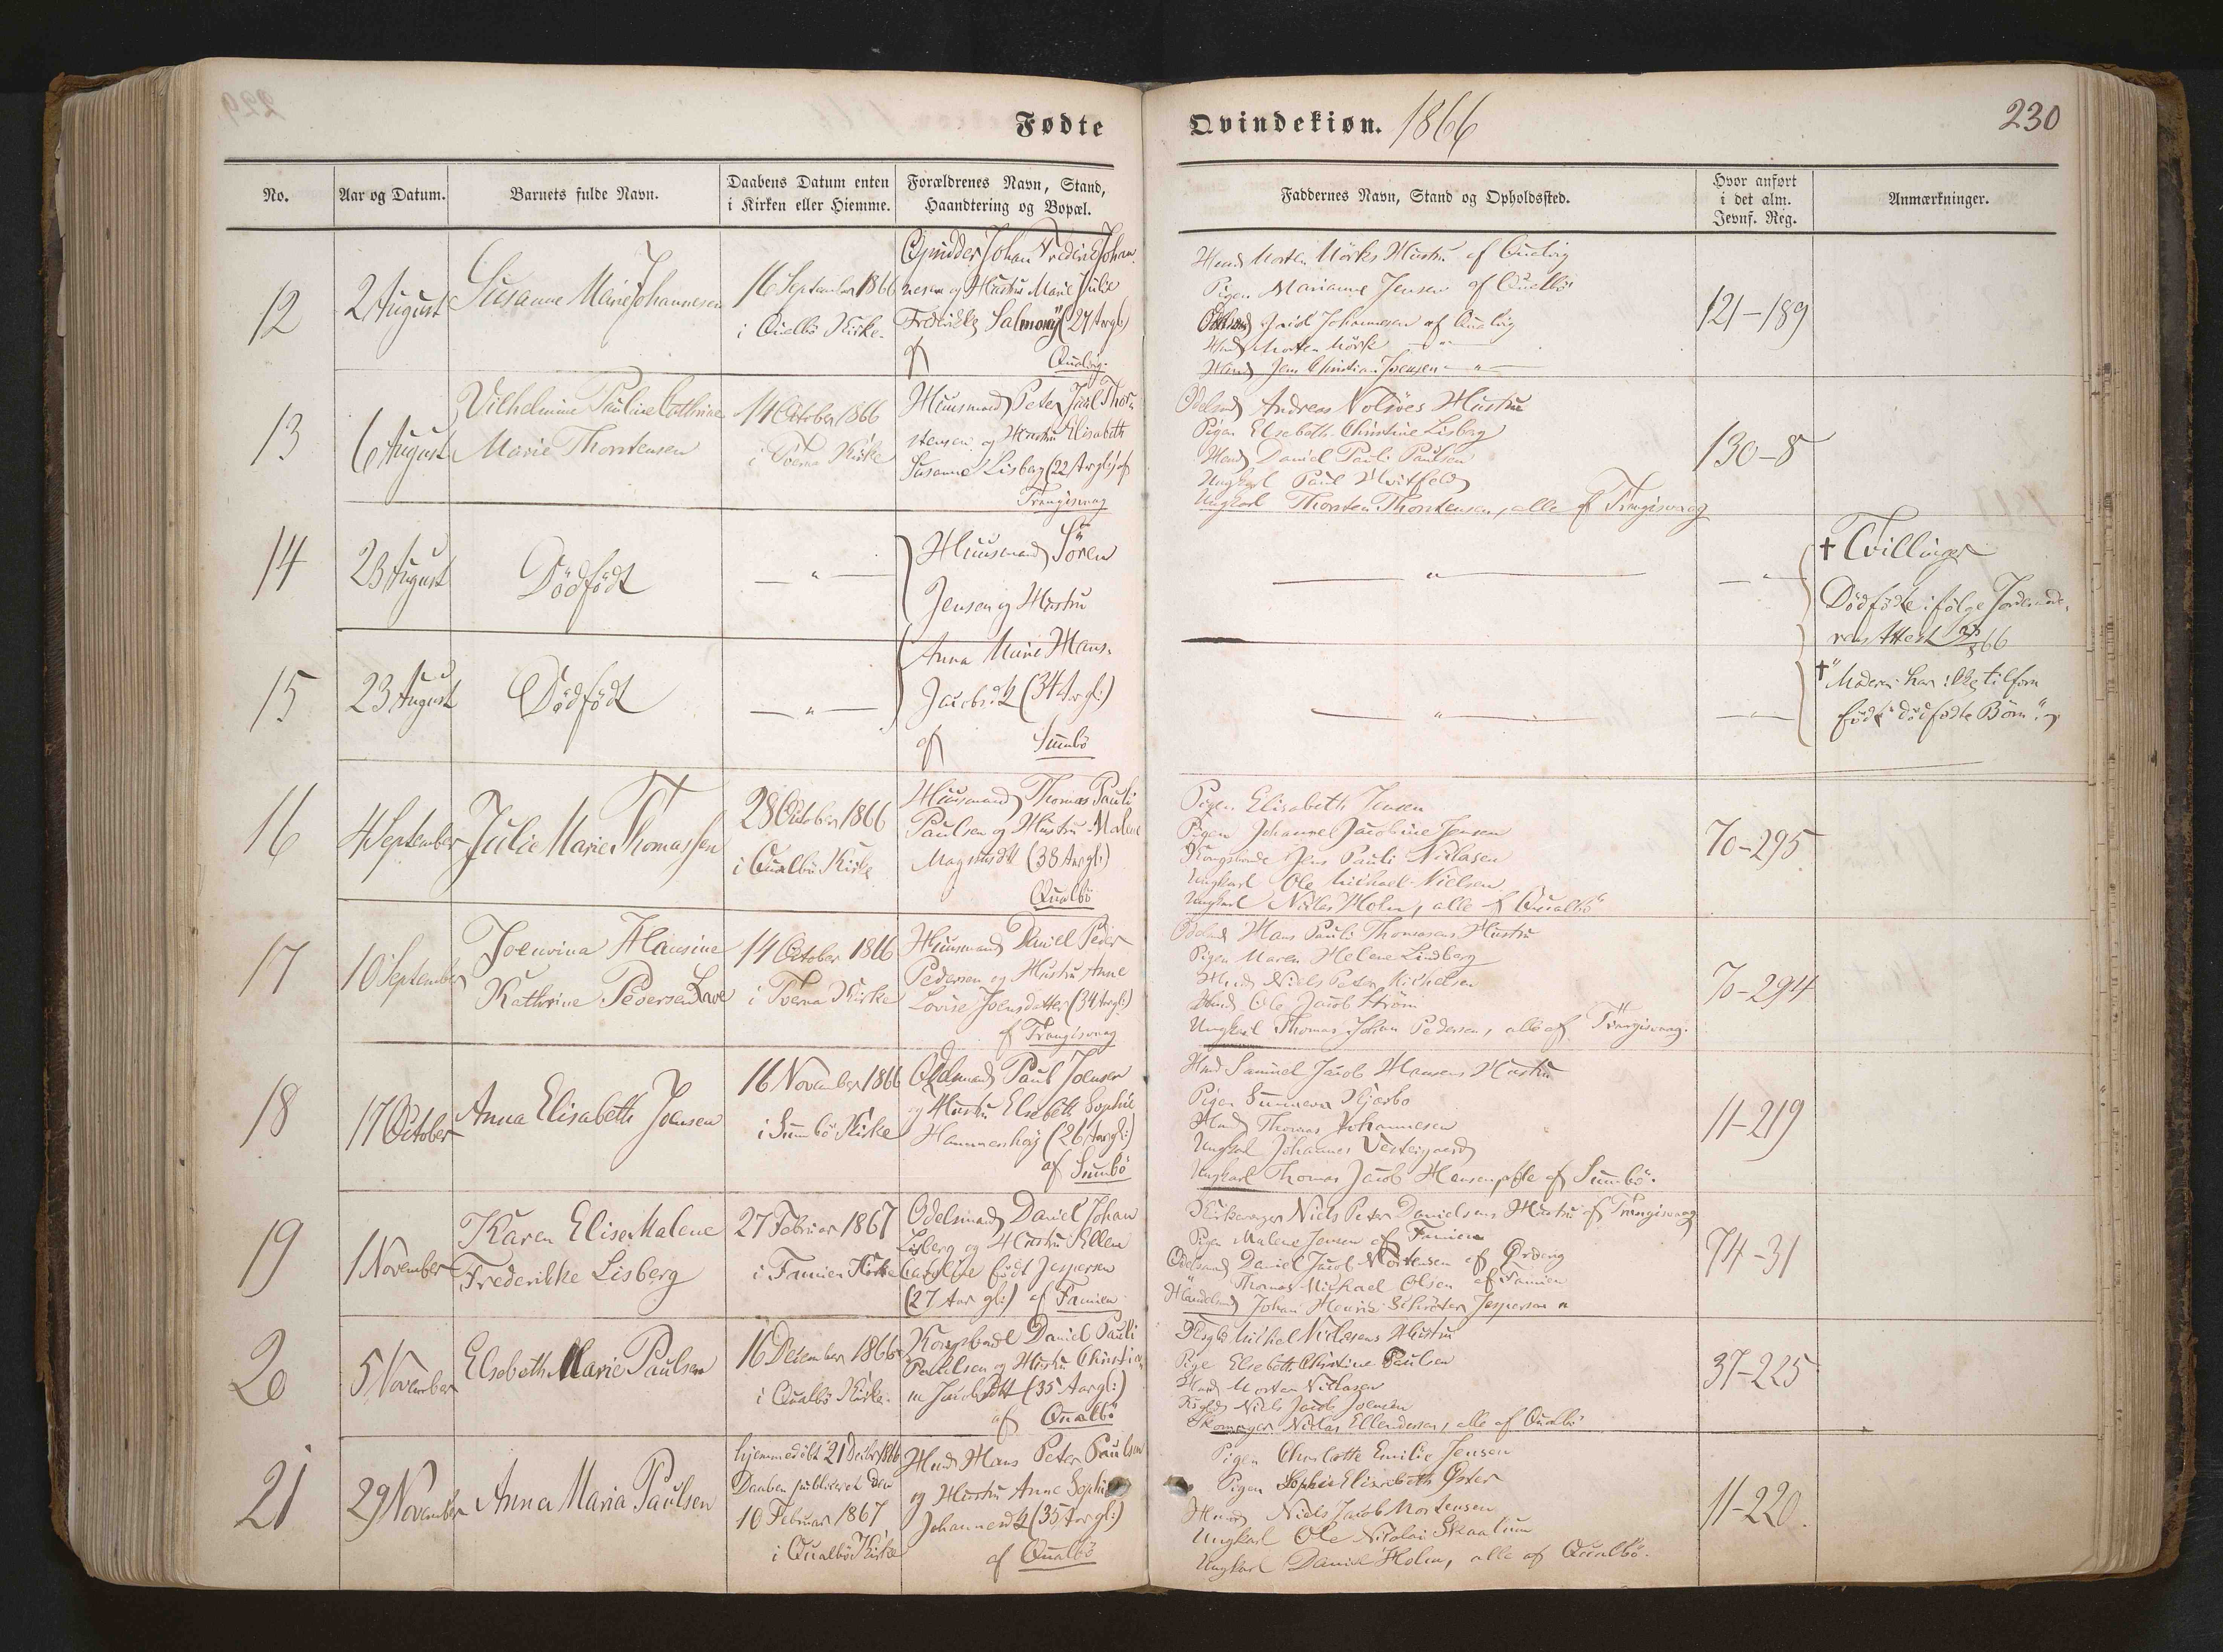 Fødte
Qvindekiøn. 1866
230
No.
Aar og Datum.
Barnets fulde Navn.
Daabens Datum enten
i Kirken eller Hiemme.
Forældrenes Navn, Stand,
Haandtering og Bopæl.
Faddernes Navn, Stand og Opholdssted.
Hvor anført
i det alm.
Jevnf. Reg.
Anmærkninger.
12
2 August
Susanne Marie Johannesen
16 September 1866
i Qualbö Kirke.
Johan Frederik Johan
nesen og Hustru Marie Julie
Salmony (27 Aar gl:)
af
Qualvig.
Huusmd Morten Mörks Hustru af Qualvig
Pigen Marianne Jensen af Qualbö
Johannesen af Qualvig
Huusmd Morten Mörk — " —
Huusmd Jens Christian Joensen — " —
121-189
13
6 August
Vilhelmine Pauline Cathrine
Marie Thorstensen
14 October 1866
i Tveraa Kirke
Huusmand Peter Juul Thor-
stensen og Hustru Elisabeth
Susanne Lisberg (22 Aar gl:) af
Trangisvaag
Odelsmd Andreas Nolsöes Hustru
Pigen Elsebeth Christine Lisberg
Huusmd Daniel Pauli Paulsen
Ungkarl Paul Hvitfeld
Ungkarl Thorsten Thorstensen, alle af Trangisvaag
130-8
14
23 August
Dödfödt
— " —
Huusmand Sören
Jensen og Hustru
— " —
— " —
† Tvillinger
Dödfödte ifölge Jordemode-
rens Attest
15
23 August
Dödfödt
— " —
Anna Marie Hans-
Jacobsdt (34 Aar gl:)
af Sumbö
— " —
— " —
† "Moderen har ikke tilforn
födt dödfödte Börn".
16
4 September
Julie Marie Thomassen
28 October 1866
i Qualbö Kirke
Huusmand Thomas Pauli
Paulsen og Hustru Malene
Magnusdtt (38 Aar gl:)
Qualbö
Pigen Elisabeth Jensen
Pigen Johanne Jacobine Jensen
Kongsbonde Jens Pauli Niclasen
Ungkarl Ole Michael Nielsen
Ungkarl Niclas Holm, alle af Qualbö
70-295
17
10 September
Joenvina Hansine
Kathrine Pedersen
14 October 1866
i Tveraa Kirke
Huusmand Daniel Peder
Pedersen og Hustru Anne
Lovise Joensdatter (34 Aar gl:)
af Trangisvaag
Odelsmd Hans Pauli Thomasens Hustru
Pigen Maren Helene Lindberg
Huusmd Niels Peter Michelsen
Huusmd Ole Jacob Ström
Ungkarl Thomas Johan Pedersen, alle af Trangisvaag.
70-294
18
17 October
Anna Elisabeth Joensen
16 November 1866
i Sumbö Kirke
Odelsmand Paul Joensen
og Hustru Elsebeth Sophie
Hammershaj (26 Aar gl:)
af Sumbö
Hmd Samuel Jacob Hansens Hustru
Pigen Sunneva Kjærbo
Hmd Thomas Johannesen
Ungkarl Johannes Vestergaard
Ungkarl Thomas Jacob Hansen, alle af Sumbö.
11-219
19
1 November
Karen Elise Malene
Frederikke Lisberg
27 Februar 1867
i Famien Kirke
Odelsmand Daniel Johan
Lisberg og Hustru Ellen
Caroline födt Jespersen
(27 Aar gl:) af Famien
Kirkeværger Niels Peter Danielsens Hustru af Trangisvaag
Pigen Malene Jensen af Famien
Odelsmand Daniel Jacob Mortensen af Ördevig
Thomas Michael Olsen af Famien
Handelsmd Johan Henrik Schröter Jespersen "
74-31
20
5 November
Elsebeth Marie Paulsen
16 December 1866
i Qualbö Kirke.
Kongsbonde Daniel Pauli
Poulsen og Hustru Christia-
ne Jacobsdtt (35 Aar gl:)
af Qualbö
Michel Niclasens Hustru
Pige Elsebeth Christine Paulsen
Hmd Morten Niclasen
Niels Jacob Joensen
Skomager Niclas Ellendersen, alle af Qualbö
37-225
21
29 November
Anna Maria Paulsen
hjemmedöbt 21 Decbr 1866
Daaben publiceret den
10 Februar 1867
i Qualbö Kirke
Hmd Hans Peter Paulsen
og Hustru Anne Sophie
Johannesdtt (35 Aar gl:)
af Qualbö
Pigen Charlotte Emilie Jensen
Pigen Sophie Elisabeth Öster
Hmd Niels Jacob Mortensen
Ungkarl Ole Nicolai Skaalum
Ungkarl Daniel Holm, alle af Qualbö.
11-220.